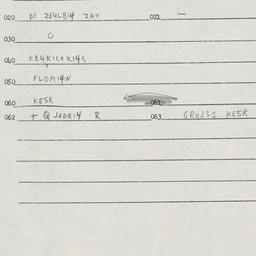 020 DI ZE4LBI4 ZAX 021 —
030 O
040 FE4RICHKI4S
050 FLOMI4N
060 KE5R 061
062 + Q JODRI4 R 063 GROJS1 KE5R